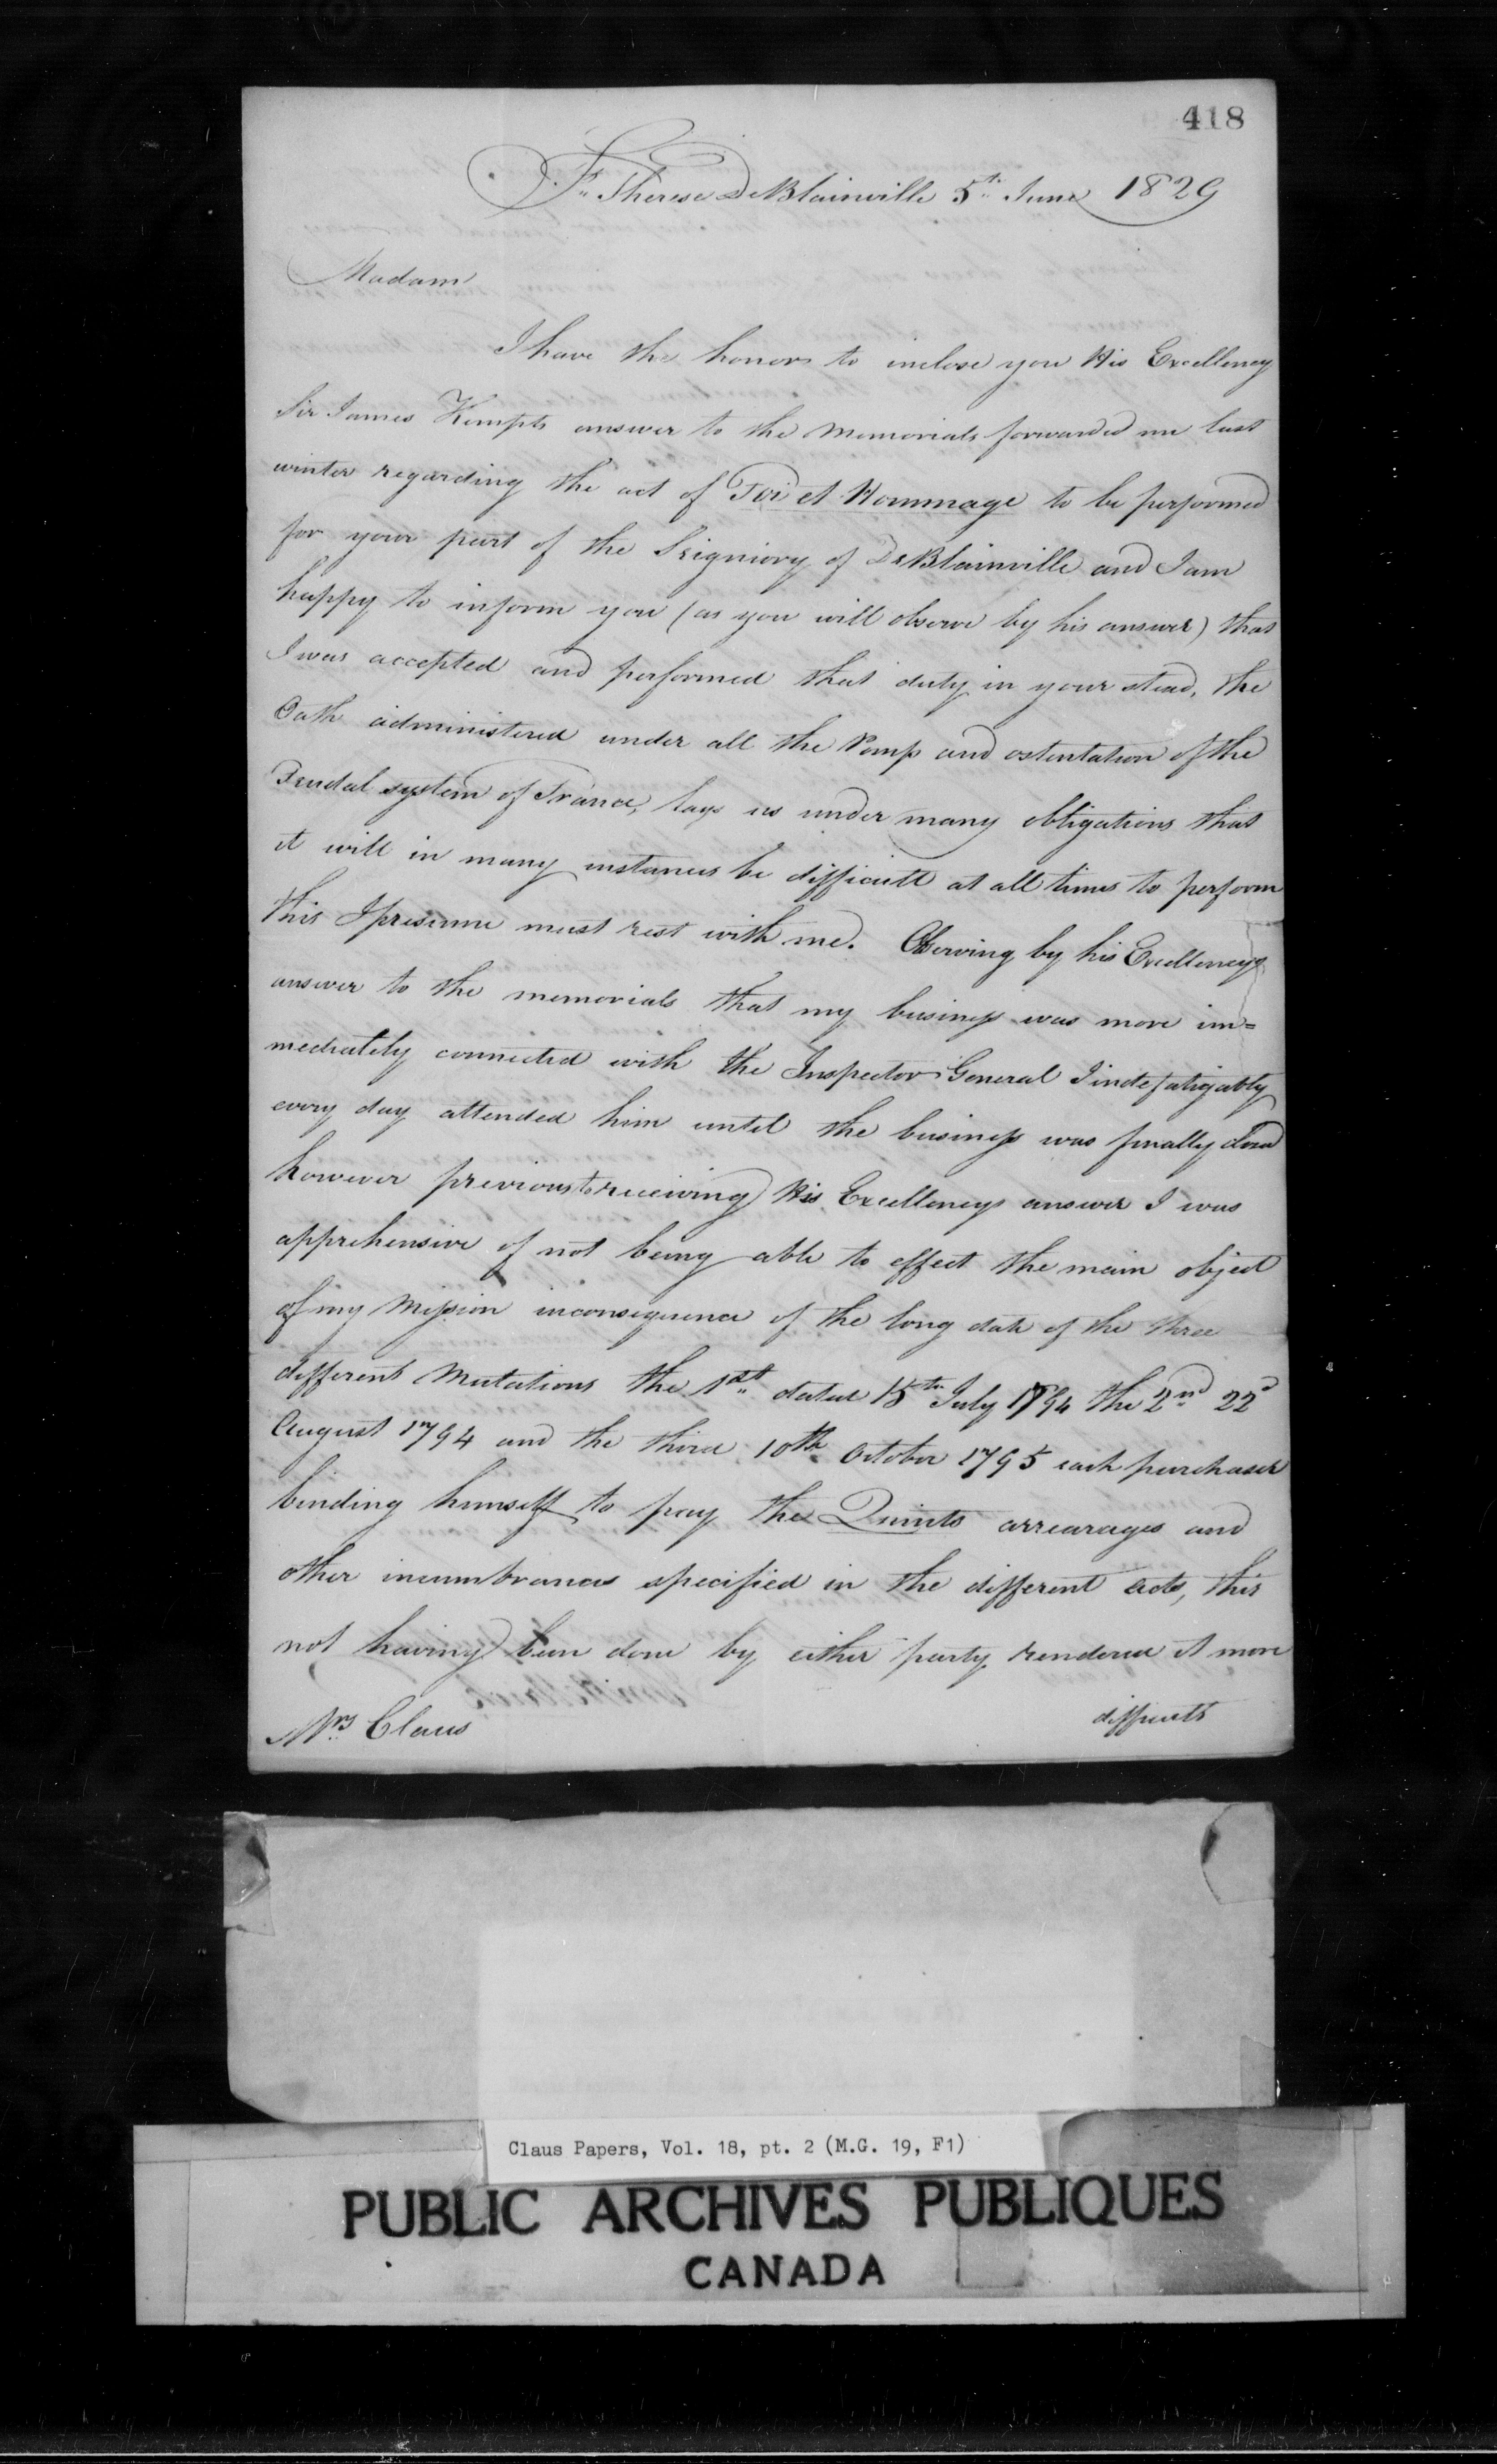 418
St. Therese DeBlainville 5th June 1829
Madam
I have the honor to inclose you His Excellency
Sir James Kempts answer to the Memorials forwarded me last
winter regarding the act of Foi et Hommage to be performed
for your part of the Seigniory of DeBlainville and I am
happy to inform you (as you will observe by his answer) that
I was accepted and performed that duty in your stead, the
Oath administered under all the Pomp and ostentation of the
Feudal system of France, lays us under many obligations that
it will in many instances be difficult at all times to perform
this I presume must rest with me. Observing by his Excellencys
answer to the memorials that my business was more im=
mediately connected with the Inspector General I indefatigably
every day attended him until the business was finally done
however previous to receiving His Excellencys answer I was
apprehensive of not being able to effect the main object
of my Mission inconsequence of the long date of the three
different Mutations the 1st dated 15th July 1794 the 2nd 22d
August 1794 and the third 10th October 1795 each purchaser
binding himself to pay the Quints arrearages and
other incumbrances specified in the different acts, this
not having been done by either party rendered it more
difficult
Mrs Claus
Claus Papers, Vol. 18, pt. 2 (M.G. 19, F1)
PUBLIC ARCHIVES PUBLIQUES
CANADA